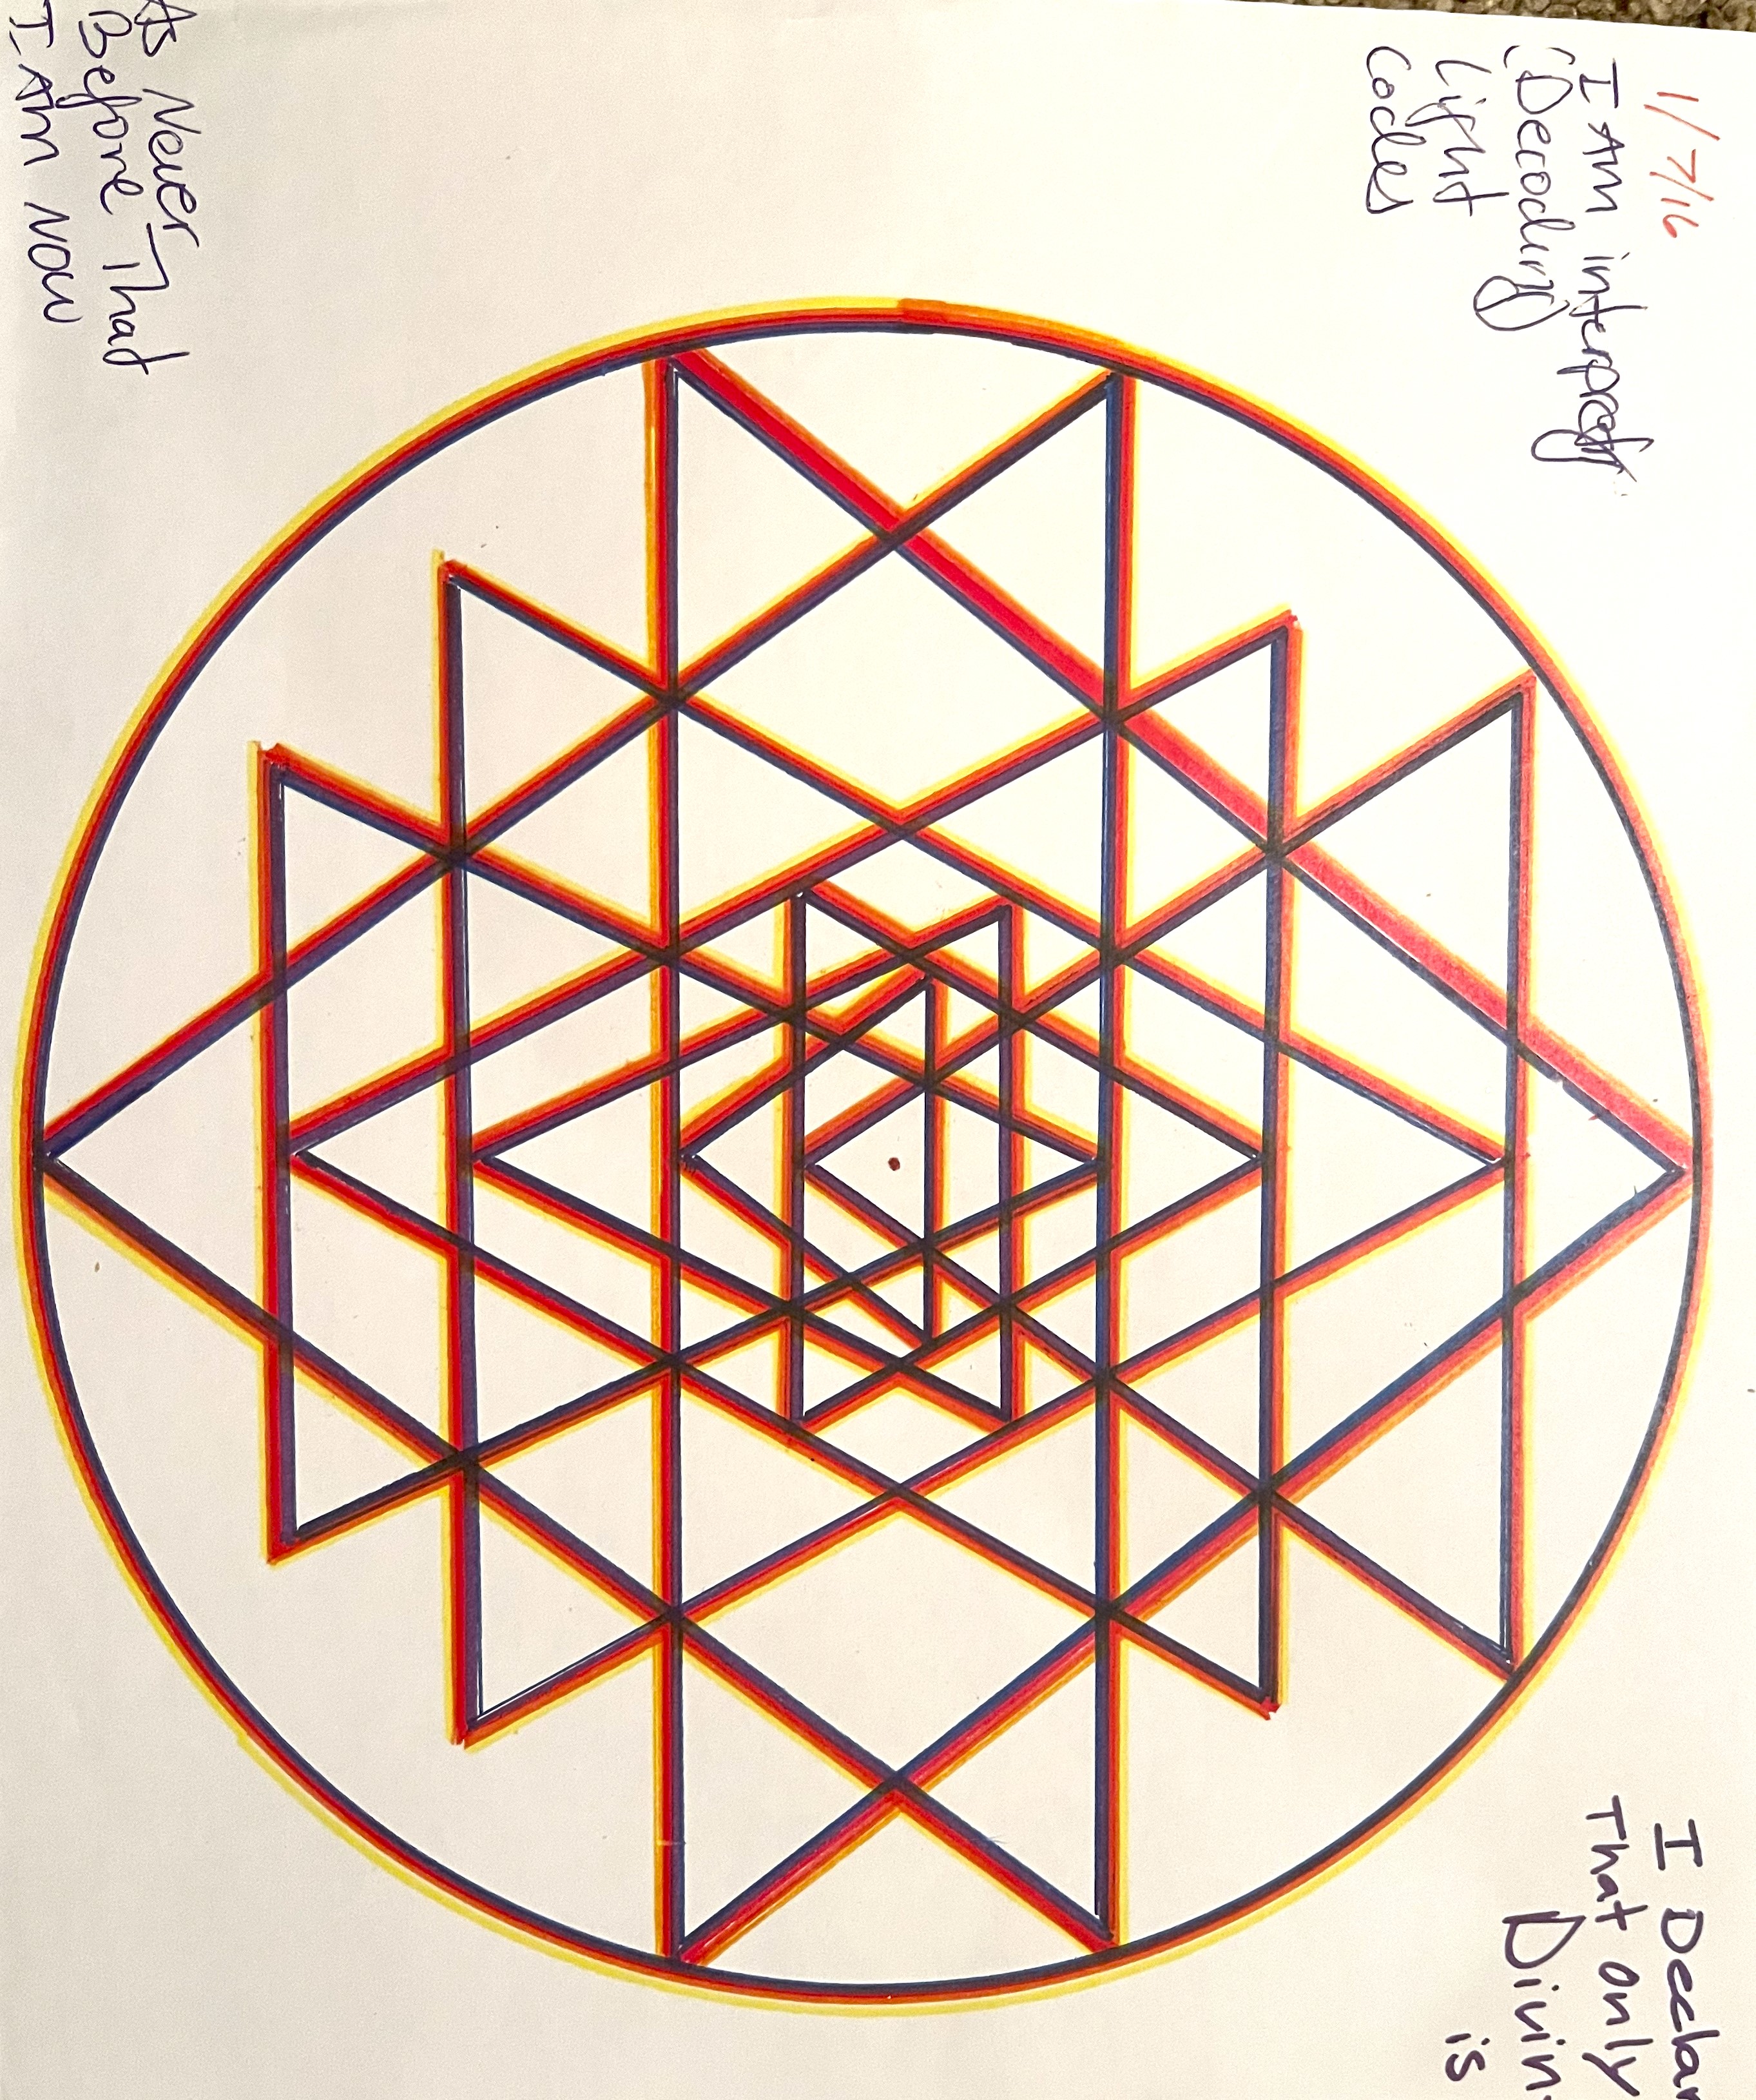 1/7/16
I AM interpret
(Decoding)
Light
Codes
I Declar
That only
Divin
is
As Never
Before That
I AM NOW